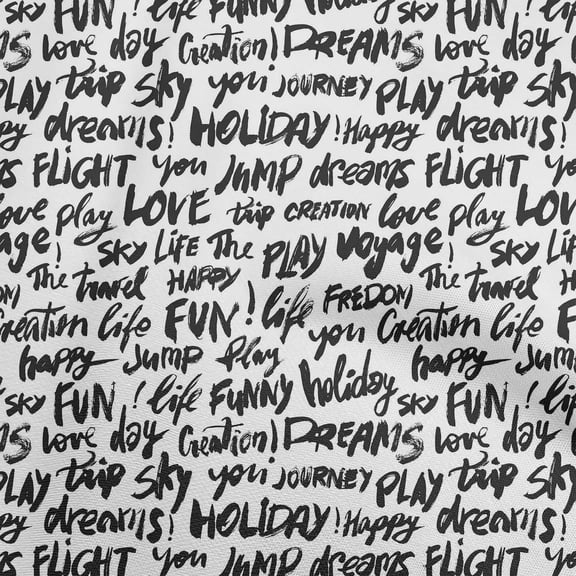 sky FUN! life FUNNY holiday sky FUN! life
love day Creation) DREAMS love day
PLAY trip sky you JOURNEY PLAY trip sky
dreams! HOLIDAY! Happy dreams!
FLIGHT you JUMP dreams FLIGHT you
love play LOVE trip CREATION love play LOVE
sky LIFE The PLAY Voyage! sky
The travel HAPPY The travel
FUN! life FREDOM
Creation life you Creation life
happy JUMP Play happy JUMP
sky FUN! life FUNNY holiday sky FUN! life
love day Creation) DREAMS love day
PLAY trip sky you JOURNEY PLAY trip sky
dreams! HOLIDAY! Happy dreams!
FLIGHT you JUMP dreams FLIGHT you